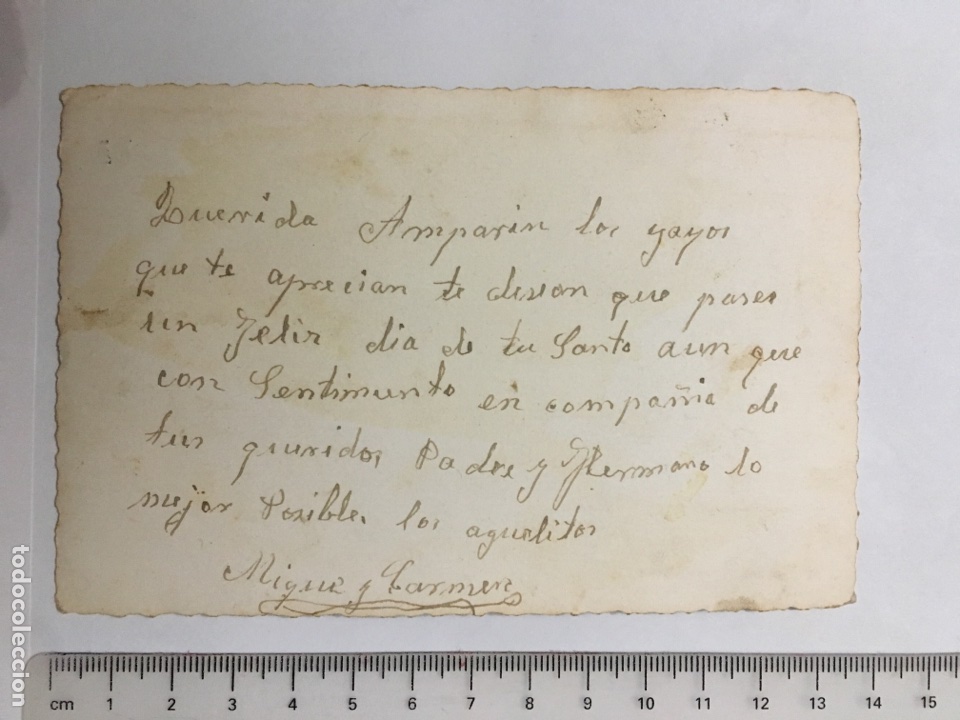 Querida Amparin los yayos
que te aprecian te desean que pases
un Felir dia de tu Santo aun que
con Sentimunto en compañia de
tus queridos Padre y Hermano lo
mejor Posible, los aguelitos
Migue y Carmen
todocoleccion
cm 1 2 3 4 5 6 7 8 9 10 11 12 13 14 15